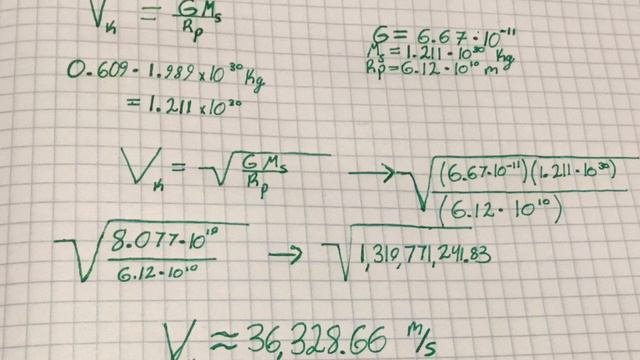 V_K = G M_s / R_p
G = 6.67·10^-11
M_s = 1.211·10^30 Kg
R_p = 6.12·10^10 m
0.609 · 1.989 x 10^30 Kg
= 1.211 x 10^30
V_K = √(G M_s / R_p) → √((6.67·10^-11)(1.211·10^30) / (6.12 · 10^10))
√(8.077·10^19 / 6.12·10^10) → √1,319,771,241.83
V ≈ 36,328.66 m/s